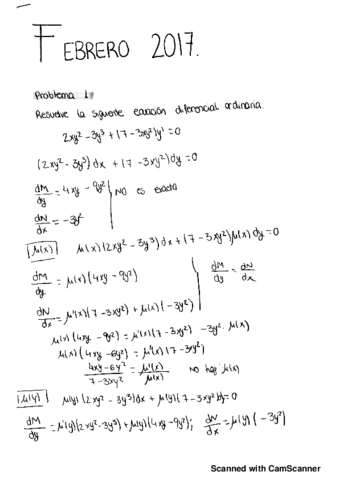 FEBRERO 2017.
Problema 1
Resuelve la siguiente ecuación diferencial ordinaria.
2xy² - 3y³ + (7 - 3xy²)y' = 0
(2xy² - 3y³)dx + (7 - 3xy²)dy = 0
dM/dy = 4xy - 9y² NO es exacta
dN/dx = -3y²
μ(x) μ(x)(2xy² - 3y³)dx + (7 - 3xy²)μ(x)dy = 0
dM/dy = μ(x)(4xy - 9y²) dM/dy = dN/dx
dN/dx = μ'(x)(7 - 3xy²) + μ(x)(-3y²)
μ(x)(4xy - 9y²) = μ'(x)(7 - 3xy²) - 3y² μ(x)
μ(x)(4xy - 6y²) = μ'(x)(7 - 3xy²)
4xy - 6y² / 7 - 3xy² = μ'(x) / μ(x) No hay μ(x)
μ(y) μ(y)(2xy² - 3y³)dx + μ(y)(7 - 3xy²)dy = 0
dM/dy = μ'(y)(2xy² - 3y³) + μ(y)(4xy - 9y²); dN/dx = μ(y)(-3y²)
Scanned with CamScanner